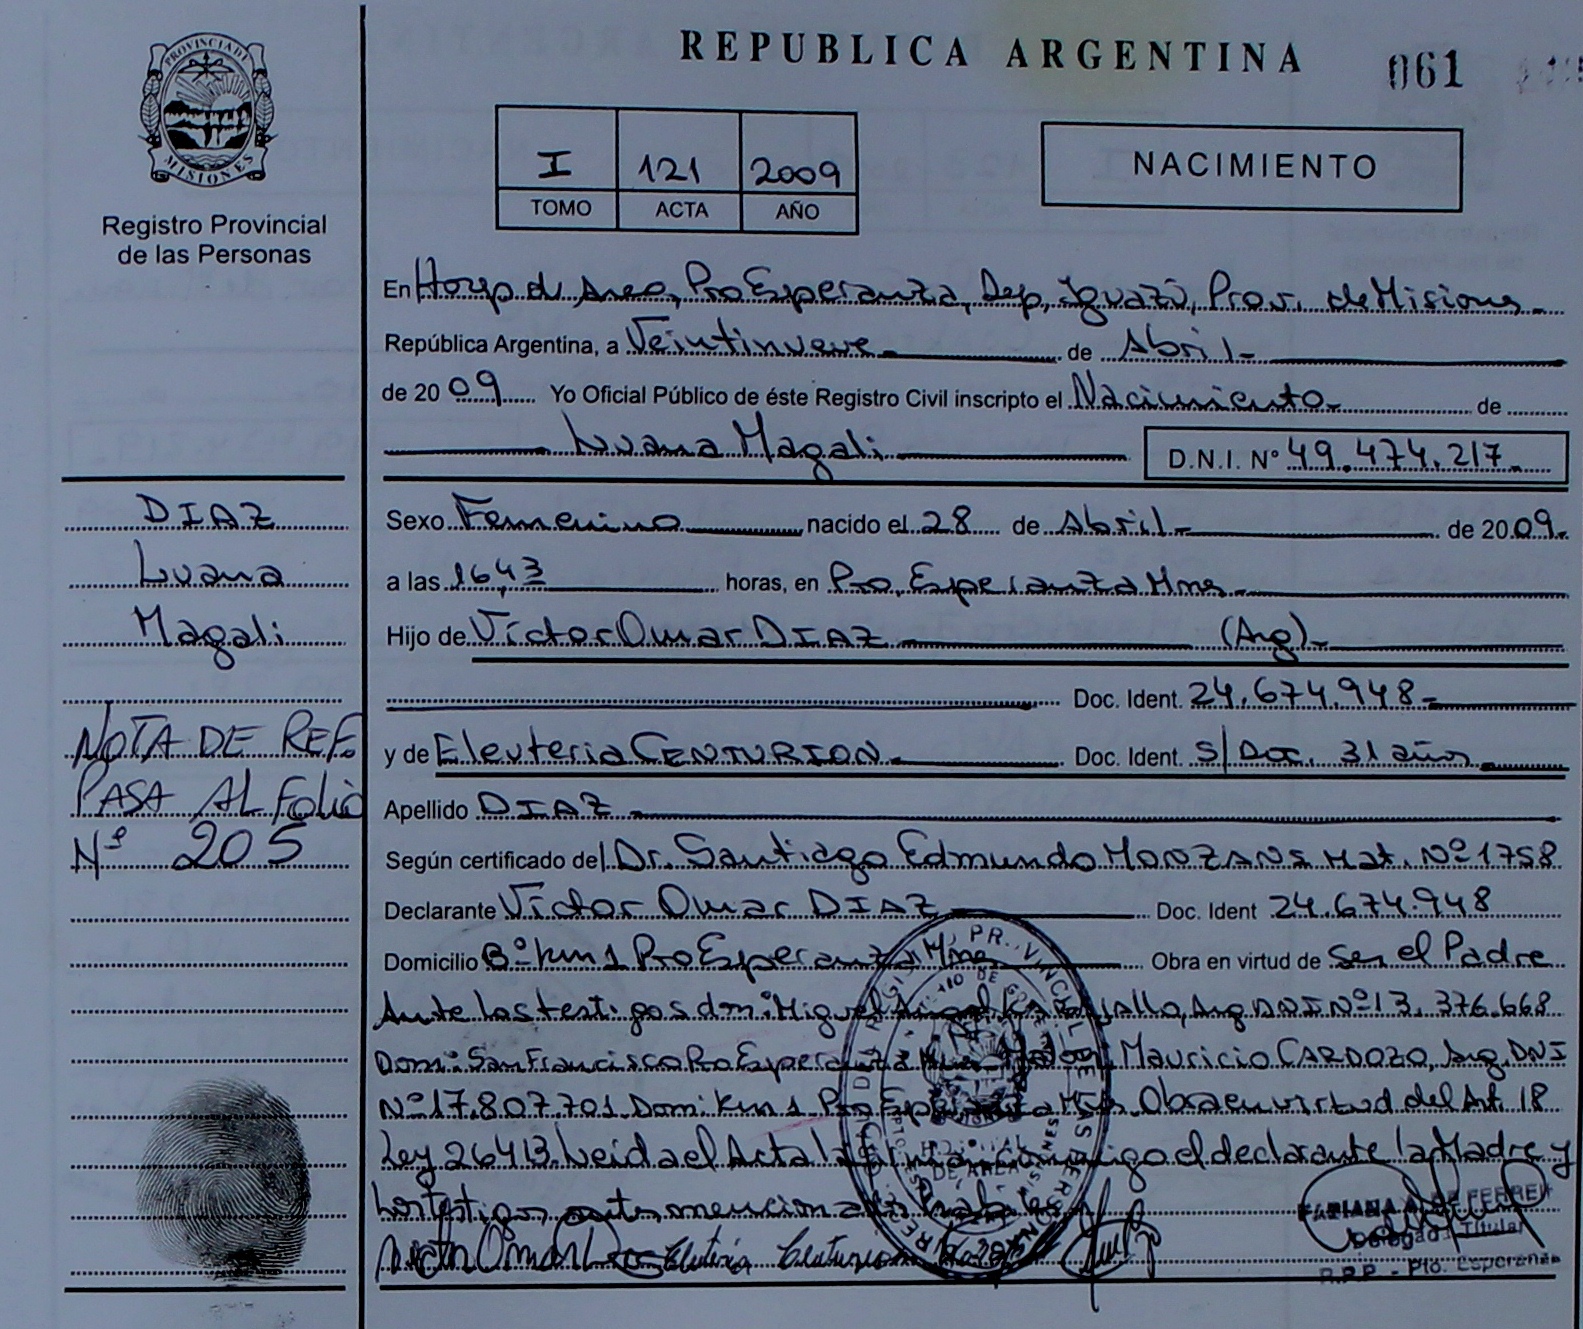 REPUBLICA ARGENTINA
061
PROVINCIA DE MISIONES
Registro Provincial
de las Personas
I 121 2009
TOMO ACTA AÑO
NACIMIENTO
En Hosp de Area, Pto Esperanza, Dep, Iguazú, Prov. de Misiones
República Argentina, a Veintinueve de Abril
de 2009 Yo Oficial Público de éste Registro Civil inscripto el Nacimiento de
Luana Magali D.N.I. Nº 49.474.217
DIAZ
Luana
Magali
NOTA DE REF.
PASA AL FOLIO
Nº 205
Sexo Femenino nacido el 28 de Abril de 2009
a las 16,43 horas, en Pto. Esperanza Mnes
Hijo de Víctor Omar DIAZ (Arg)
Doc. Ident. 24.674.948
y de Eleuteria CENTURION Doc. Ident. S/Doc. 31 años
Apellido DIAZ
Según certificado del Dr. Santiago Edmundo Mat. Nº 1758
Declarante Víctor Omar DIAZ Doc. Ident 24.674.948
Domicilio Bº km 1 Pto Esperanza Mnes Obra en virtud de Ser el Padre
Ante los testigos Miguel Arg DNI Nº 13.376.668
Domi: San Francisco Pto Esperanza Mauricio CARDOZO, Arg. DNI
Nº 17.807.701 Domi: km 1 Pto Obra en virtud del Art. 18
Ley 26413. Leida el Acta la firma conmigo el declarante la Madre y
los testigos antes mencionados
Delegada Titular
R.P.P. - Pto. Esperanza